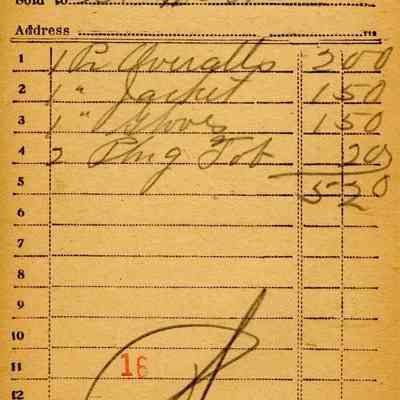 Sold to
Address
1 1 Pr Overalls 2 00
2 1 " Jacket 1 50
3 1 " Gloves 1 50
4 2 Plug Tob 20
5 5 20
6
7
8
9
10
11 16
12